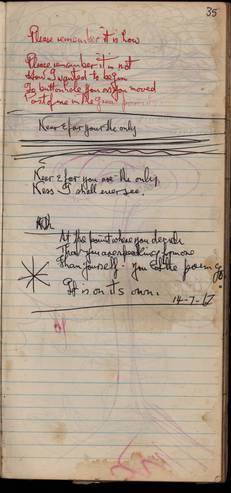 35
Please remember it is how
Please remember it is not
How I wanted to begin
To buttonhole you as you moved
Near & far your the only
Near & far you are the only
Ness I shall ever see.
At the point where you decide
That you are speaking to more
Than yourself - you let the poem go.
It is on its own.
14-7-67